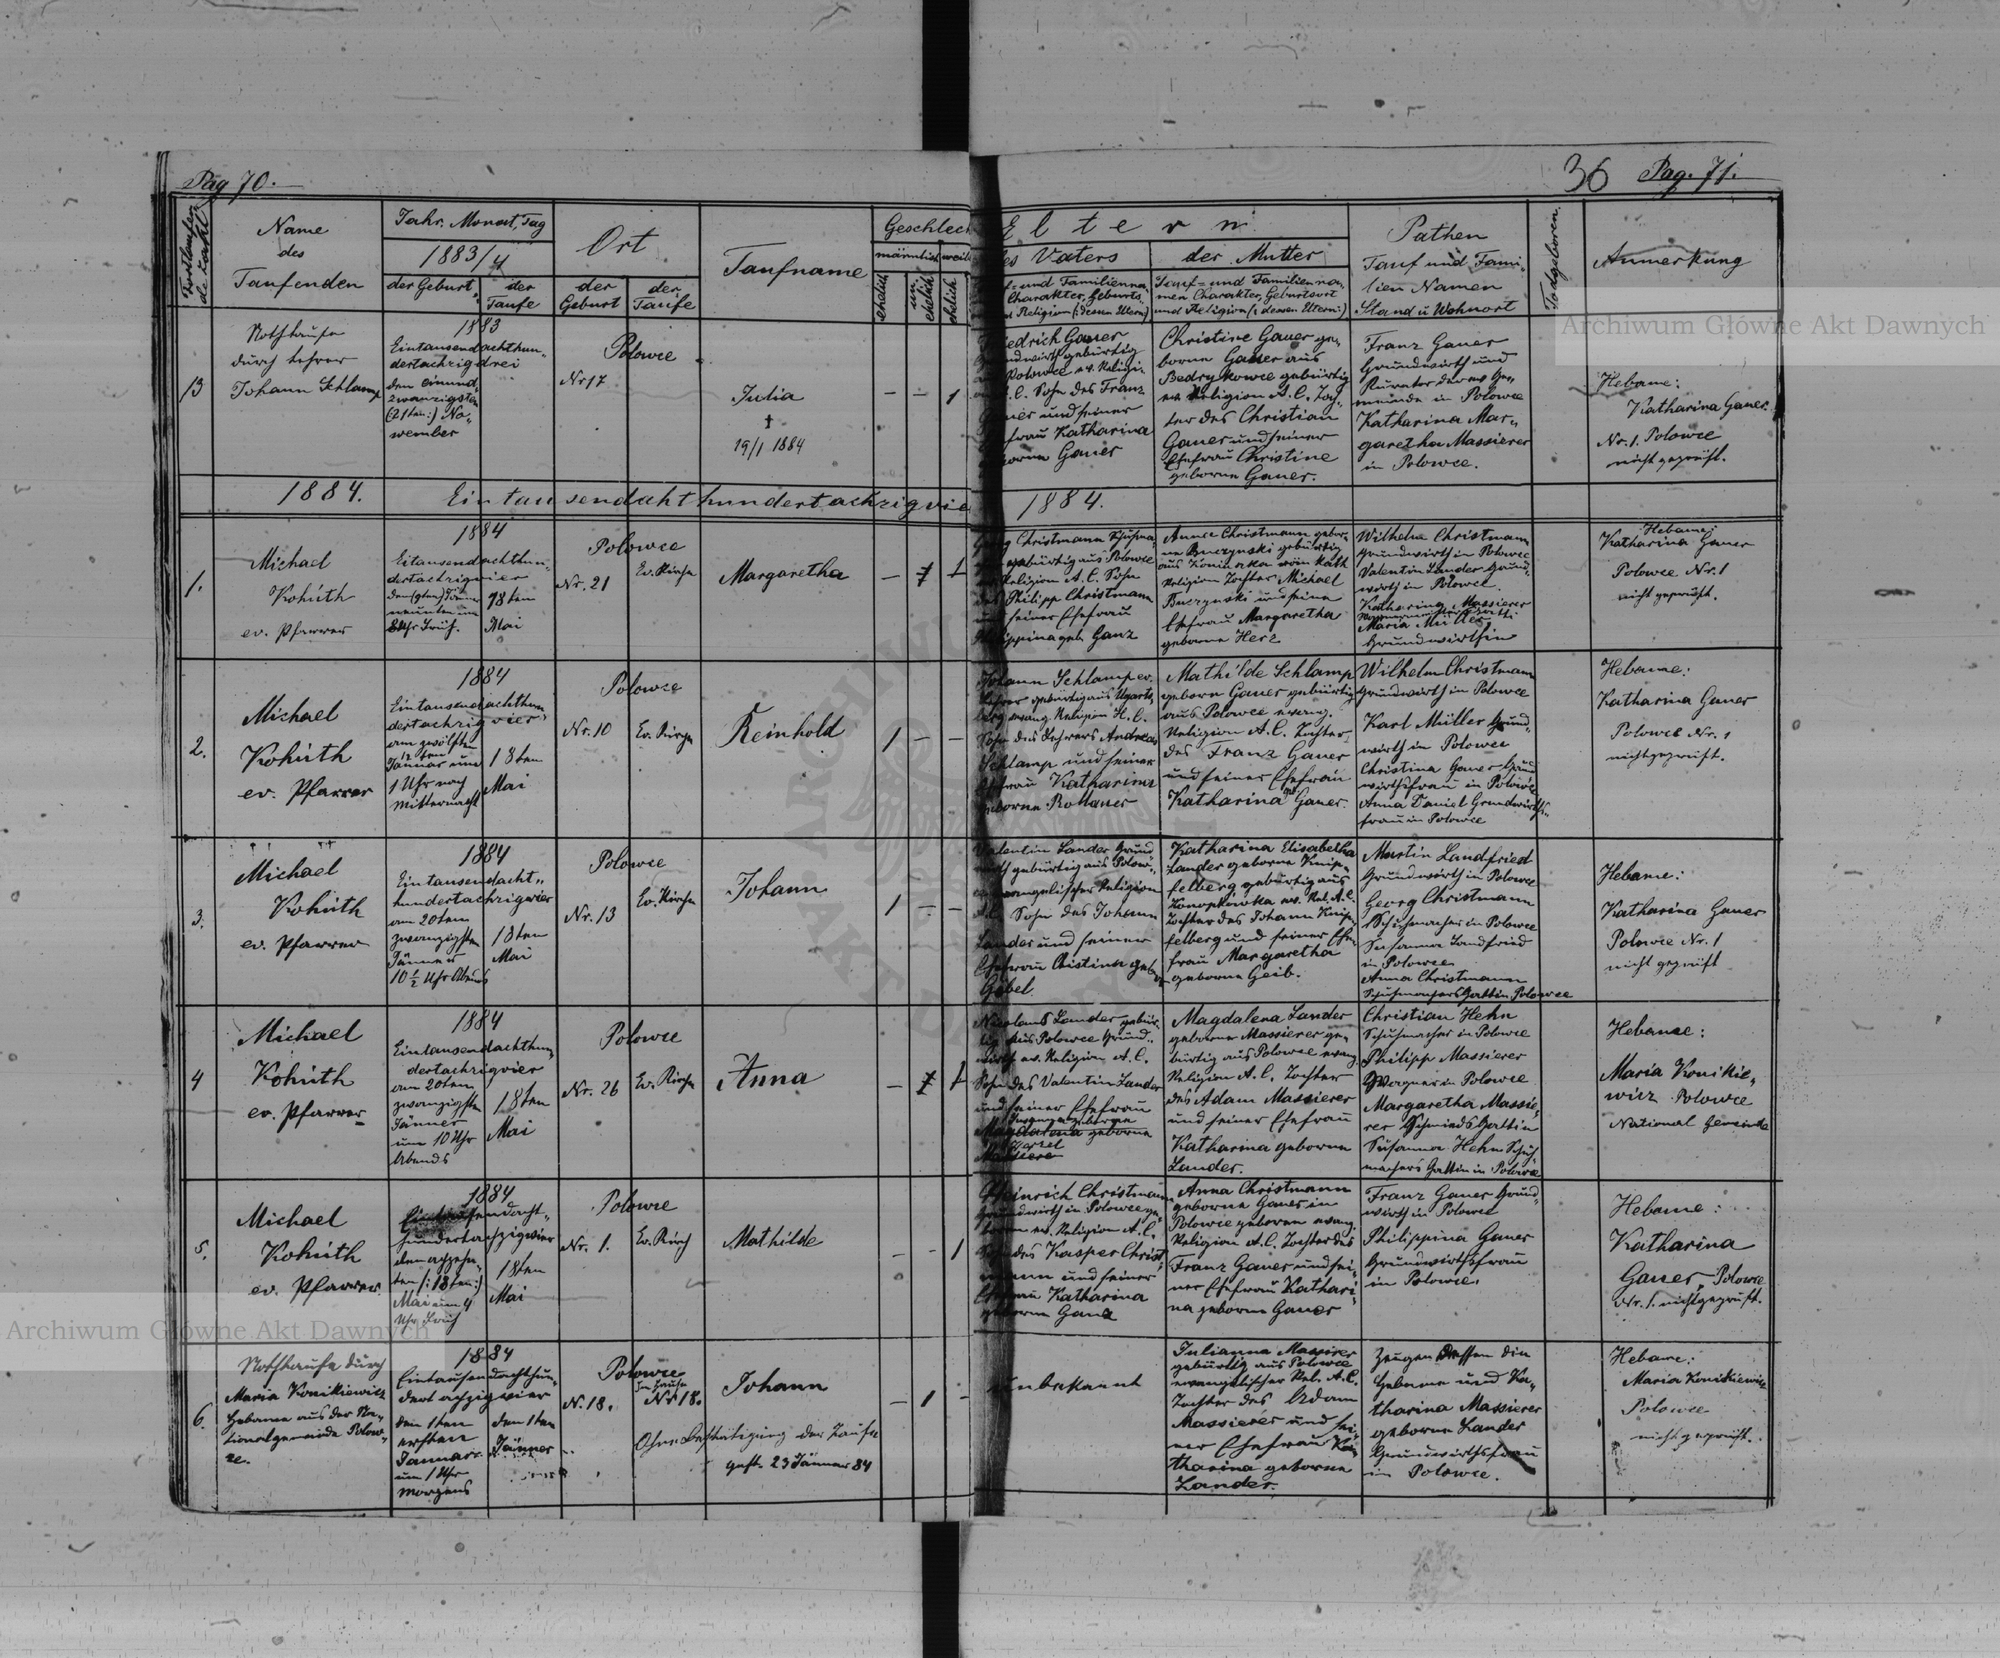 Pag 70.
36 Pag. 71.
Fortlaufende Zahl
Name
des
Taufenden
Jahr. Monat, Tag
1883/4
der Geburt
der
Taufe
Ort
der
Geburt
der
Taufe
Taufname
Geschlech
männlich weibl
ehelich
un
ehelich
ehelich
Eltern
des Vaters
der Mutter
und Familienna
Charakter, Geburts
Religion (: dessen Eltern:)
Tauf= und Familienna-
men Charakter, Geburtsort
und Religion (: dessen Eltern:)
Pathen
Tauf und Fami-
lien Namen
Stand u Wohnort
Todgeboren.
Anmerkung
13
Nothtaufe
durch Lehrer
Johann Schlamp
1883
Eintausendachthun-
dertachzigdrei
den einund-
zwanzigsten
(21ten:) No-
vember
Polowce
Nr 17
Julia
†
19/1 1884
– – 1
Friedrich Gauer
Grundwirth gebürtig
aus Polowce ev. Religi-
A. C. Sohn des Franz
Gauer und seiner
Ehefrau Katharina
geborne Gauer
Christine Gauer ge-
borne Gauer aus
Bedrykowce gebürtig
ev Religion A. C. Toch-
ter des Christian
Gauer und seiner
Ehefrau Christine
geborne Gauer.
Franz Gauer
Grundwirth und
Kurator der ev Ge-
meinde in Polowce
Katharina Mar-
garetha Massierer
in Polowce.
Hebame:
Katharina Gauer
Nr. 1. Polowce
nicht geprüft.
1884. Eintausendachthundertachzigvie 1884.
1.
Michael
Kohúth
ev. Pfarrer
1884
Eitausendachthun-
dertachzigvier
den (9ten) Jänner
neunten um
8 Uhr Früh.
18ten
Mai
Polowce
Nr. 21
Ev. Kirche
Margaretha
– 1 1
Georg Christmann Schuhma-
gebürtig aus Polowce
Religion A. C. Sohn
des Philipp Christmann
und seiner Ehefrau
Philippina geb. Ganz
Annee Christmann gebor-
ne Buczynski gebürtig
aus röm Kath
Religion Tochter Michael
Buczynski und seine
Ehefrau Margaretha
geborne Herz
Wilhelm Christmann
Grundwirth in Polowce
Valentin Lander Grund-
wirth in Polowce
Katharina Massierer
Maria Müller
Grundwirthin
Hebame:
Katharina Gauer
Polowce Nr. 1
nicht geprüft.
2.
Michael
Kohúth
ev. Pfarrer
1884
Eintausendachthun-
dertachzigvier
am zwölften
12 ten
Januar um
1 Uhr nach
mitternacht
18ten
Mai
Polowce
Nr. 10
Ev. Kirche
Reinhold
1 – –
Johann Schlamp ev.
Lehrer gebürtig aus Ugarts-
berg evang. Religion H. C.
Sohn des Lehrers Andreas
Schlamp und seiner
Ehefrau Katharina
geborne Rollauer
Mathilde Schlamp
geborn Gauer gebürtig
aus Polowce evang.
Religion A. C. Tochter
des Franz Gauer
und seiner Ehefrau
Katharina geb Gauer.
Wilhelm Christmann
Grundwirth in Polowce
Karl Müller Grund-
wirth in Polowce
Christina Gauer Grund
wirthsfrau in Polowce
Anna Daniel Grundwirths-
frau in Polowce
Hebame:
Katharina Gauer
Polowce Nr. 1
nicht geprüft.
3.
Michael
Kohúth
ev. Pfarrer
1884
Eintausendacht-
hundertachzigvier
am 20ten
zwanzigsten
Jänner
10 ½ Uhr Abends
18ten
Mai
Polowce
Nr. 13
Ev. Kirche
Johann
1 – –
Valentin Lander Grund
wirth gebürtig aus Polow-
ce evangelischer Religion
A. C. Sohn des Johann
Lander und seiner
Ehefrau Christina geb
Göbel
Katharina Elisabetha
Lander geborne Knip-
felberg gebürtig aus
Konopkówka ev. Rel. A. C.
Tochter des Johann Knip-
felberg und seiner Ehe-
frau Margaretha
geborne Geib.
Martin Landfried
Grundwirth in Polowce
Georg Christmann
Schuhmacher in Polowce
Susanna Landfried
in Polowce
Anna Christmann
Schuhmachers Gattin Polowce
Hebame:
Katharina Gauer
Polowce Nr. 1
nicht geprüft
4
Michael
Kohúth
ev. Pfarrer
1884
Eintausendachthun-
dertachzigvier
am 20ten
zwanzigsten
Jänner
um 10 Uhr
Abends
18ten
Mai
Polowce
Nr. 26
Ev. Kirche
Anna
– 1 1
Nicolaus Lander gebür-
tig aus Polowce Grund-
wirth ev. Religion A. C.
Sohn des Valentin Lander
und seiner Ehefrau
Magdalena geborne
Massierer
Magdalena Lander
geborne Massierer ge-
bürtig aus Polowce evang
Religion A. C. Tochter
des Adam Massierer
und seiner Ehefrau
Katharina geborne
Lander.
Christian Hehn
Schuhmacher in Polowce
Philipp Massierer
Wagner in Polowce
Margaretha Massie-
rer Schmieds Gattin
Susanna Hehn Schuh-
machers Gattin in Polowce
Hebame:
Maria Konikie-
wicz Polowce
National Gemeinde
5.
Michael
Kohúth
ev. Pfarrer
1884
Eintausendacht-
hundertachzigvier
den achzehn-
ten (: 18ten :)
Mai um 4
Uhr Früh
18ten
Mai
Polowce
Nr. 1.
Ev. Kirch
Mathilde
– – 1
Heinrich Christmann
Grundwirth in Polowce ge-
boren ev. Religion A. C.
Sohn des Kasper Christ-
mann und seiner
Ehefrau Katharina
geborne Ganz
Anna Christmann
geborne Gauer in
Polowce geboren evang.
Religion A. C. Tochter des
Franz Gauer und sei-
ner Ehefrau Kathari-
na geborne Gauer
Franz Gauer Grund-
wirth in Polowce
Philippina Gauer
Grundwirthsfrau
in Polowce.
Hebame:
Katharina
Gauer, Polowce
Nr. 1. nicht geprüft.
6.
Nothtaufe durch
Maria Konikiewicz
Hebame aus der Na-
tionalgemeinde Polow-
ce.
1884
Eintausendachthun-
dert achzigvier
den 1ten
ersten
Januar
um 1 Uhr
Morgens
den 1ten
Jänner
Polowce
N. 18.
Im Hause
Nr 18.
Johann
Ohne Bestätigung der Taufe
gest. 23 Jänner 84
– 1 –
Unbekannt
Julianna Massirer
gebürtig aus Polowce
evangelischer Rel. A. C.
Tochter des Adam
Massierer und sei-
ner Ehefrau Ka-
tharina geborne
Lander.
Zeugen dessen die
Hebame und Ka-
tharina Massierer
geborne Lander
Grundwirthsfrau
in Polowce.
Hebame:
Maria Konikiewicz
Polowce
nicht geprüft.
Archiwum Główne Akt Dawnych
Archiwum Główne Akt Dawnych